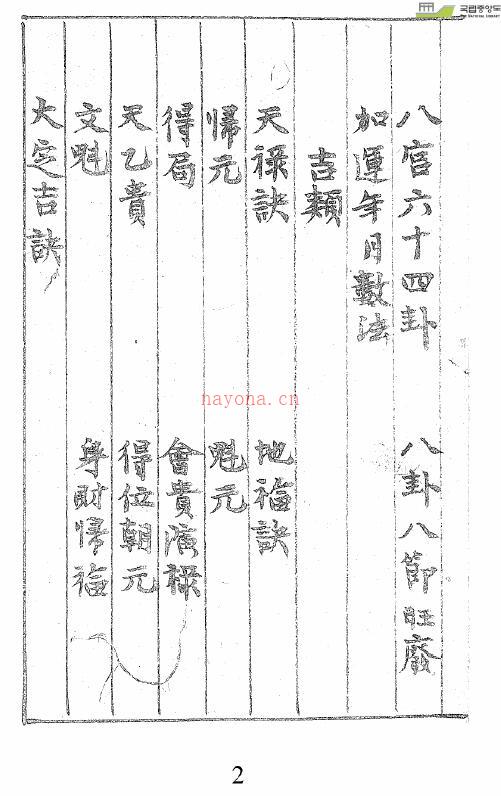 国립중앙도
THE NATIONAL LIBRARY
八官六十四卦 八卦八節旺廢
加運年月數法
吉類
天祿訣 地福訣
帰元 魁元
得局 會貴演祿
天乙貴 得位朝元
文魁 身財帰福
大定吉訣
nayona.cn
2